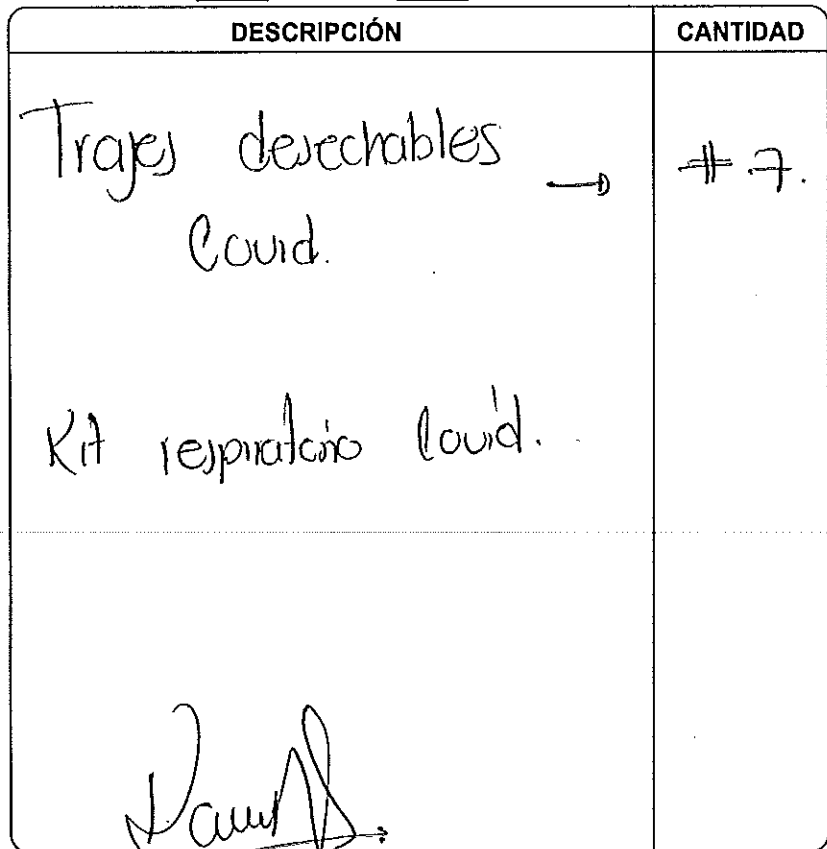 DESCRIPCIÓN CANTIDAD
Trajes desechables → # 7.
Covid.
Kit respiratorio Covid.